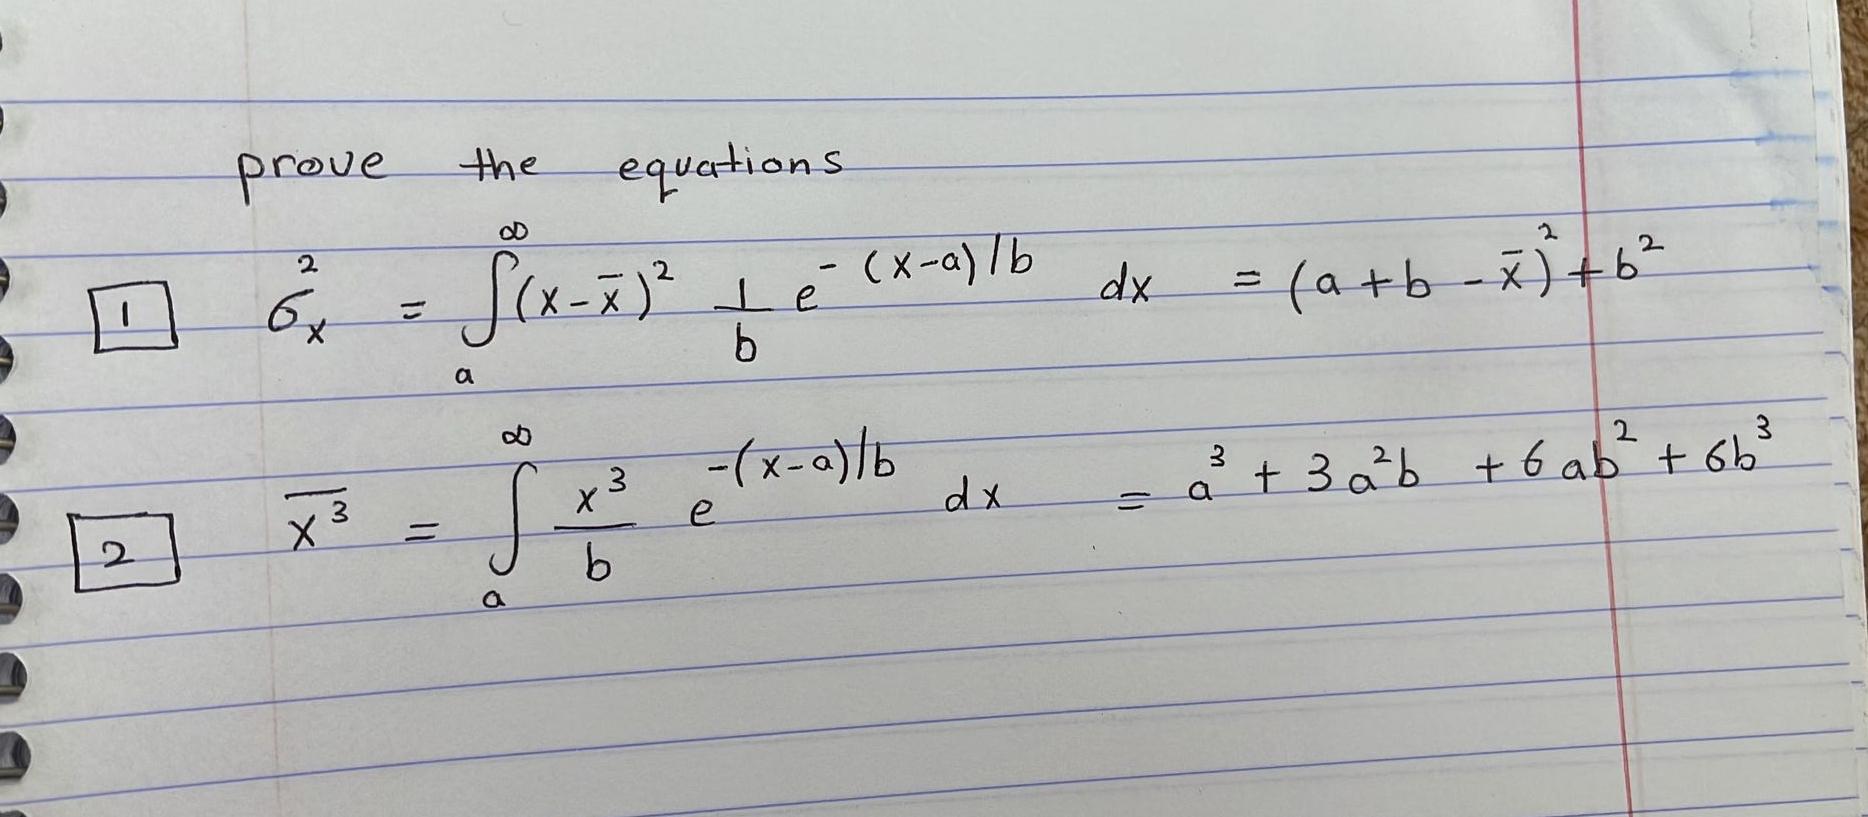 prove the equations
1 σₓ² = ∫ₐ^∞ (x-x̄)² 1/b e^-(x-a)/b dx = (a+b-x̄)²+b²
2 x³̅ = ∫ₐ^∞ x³/b e^-(x-a)/b dx = a³ + 3a²b + 6ab² + 6b³